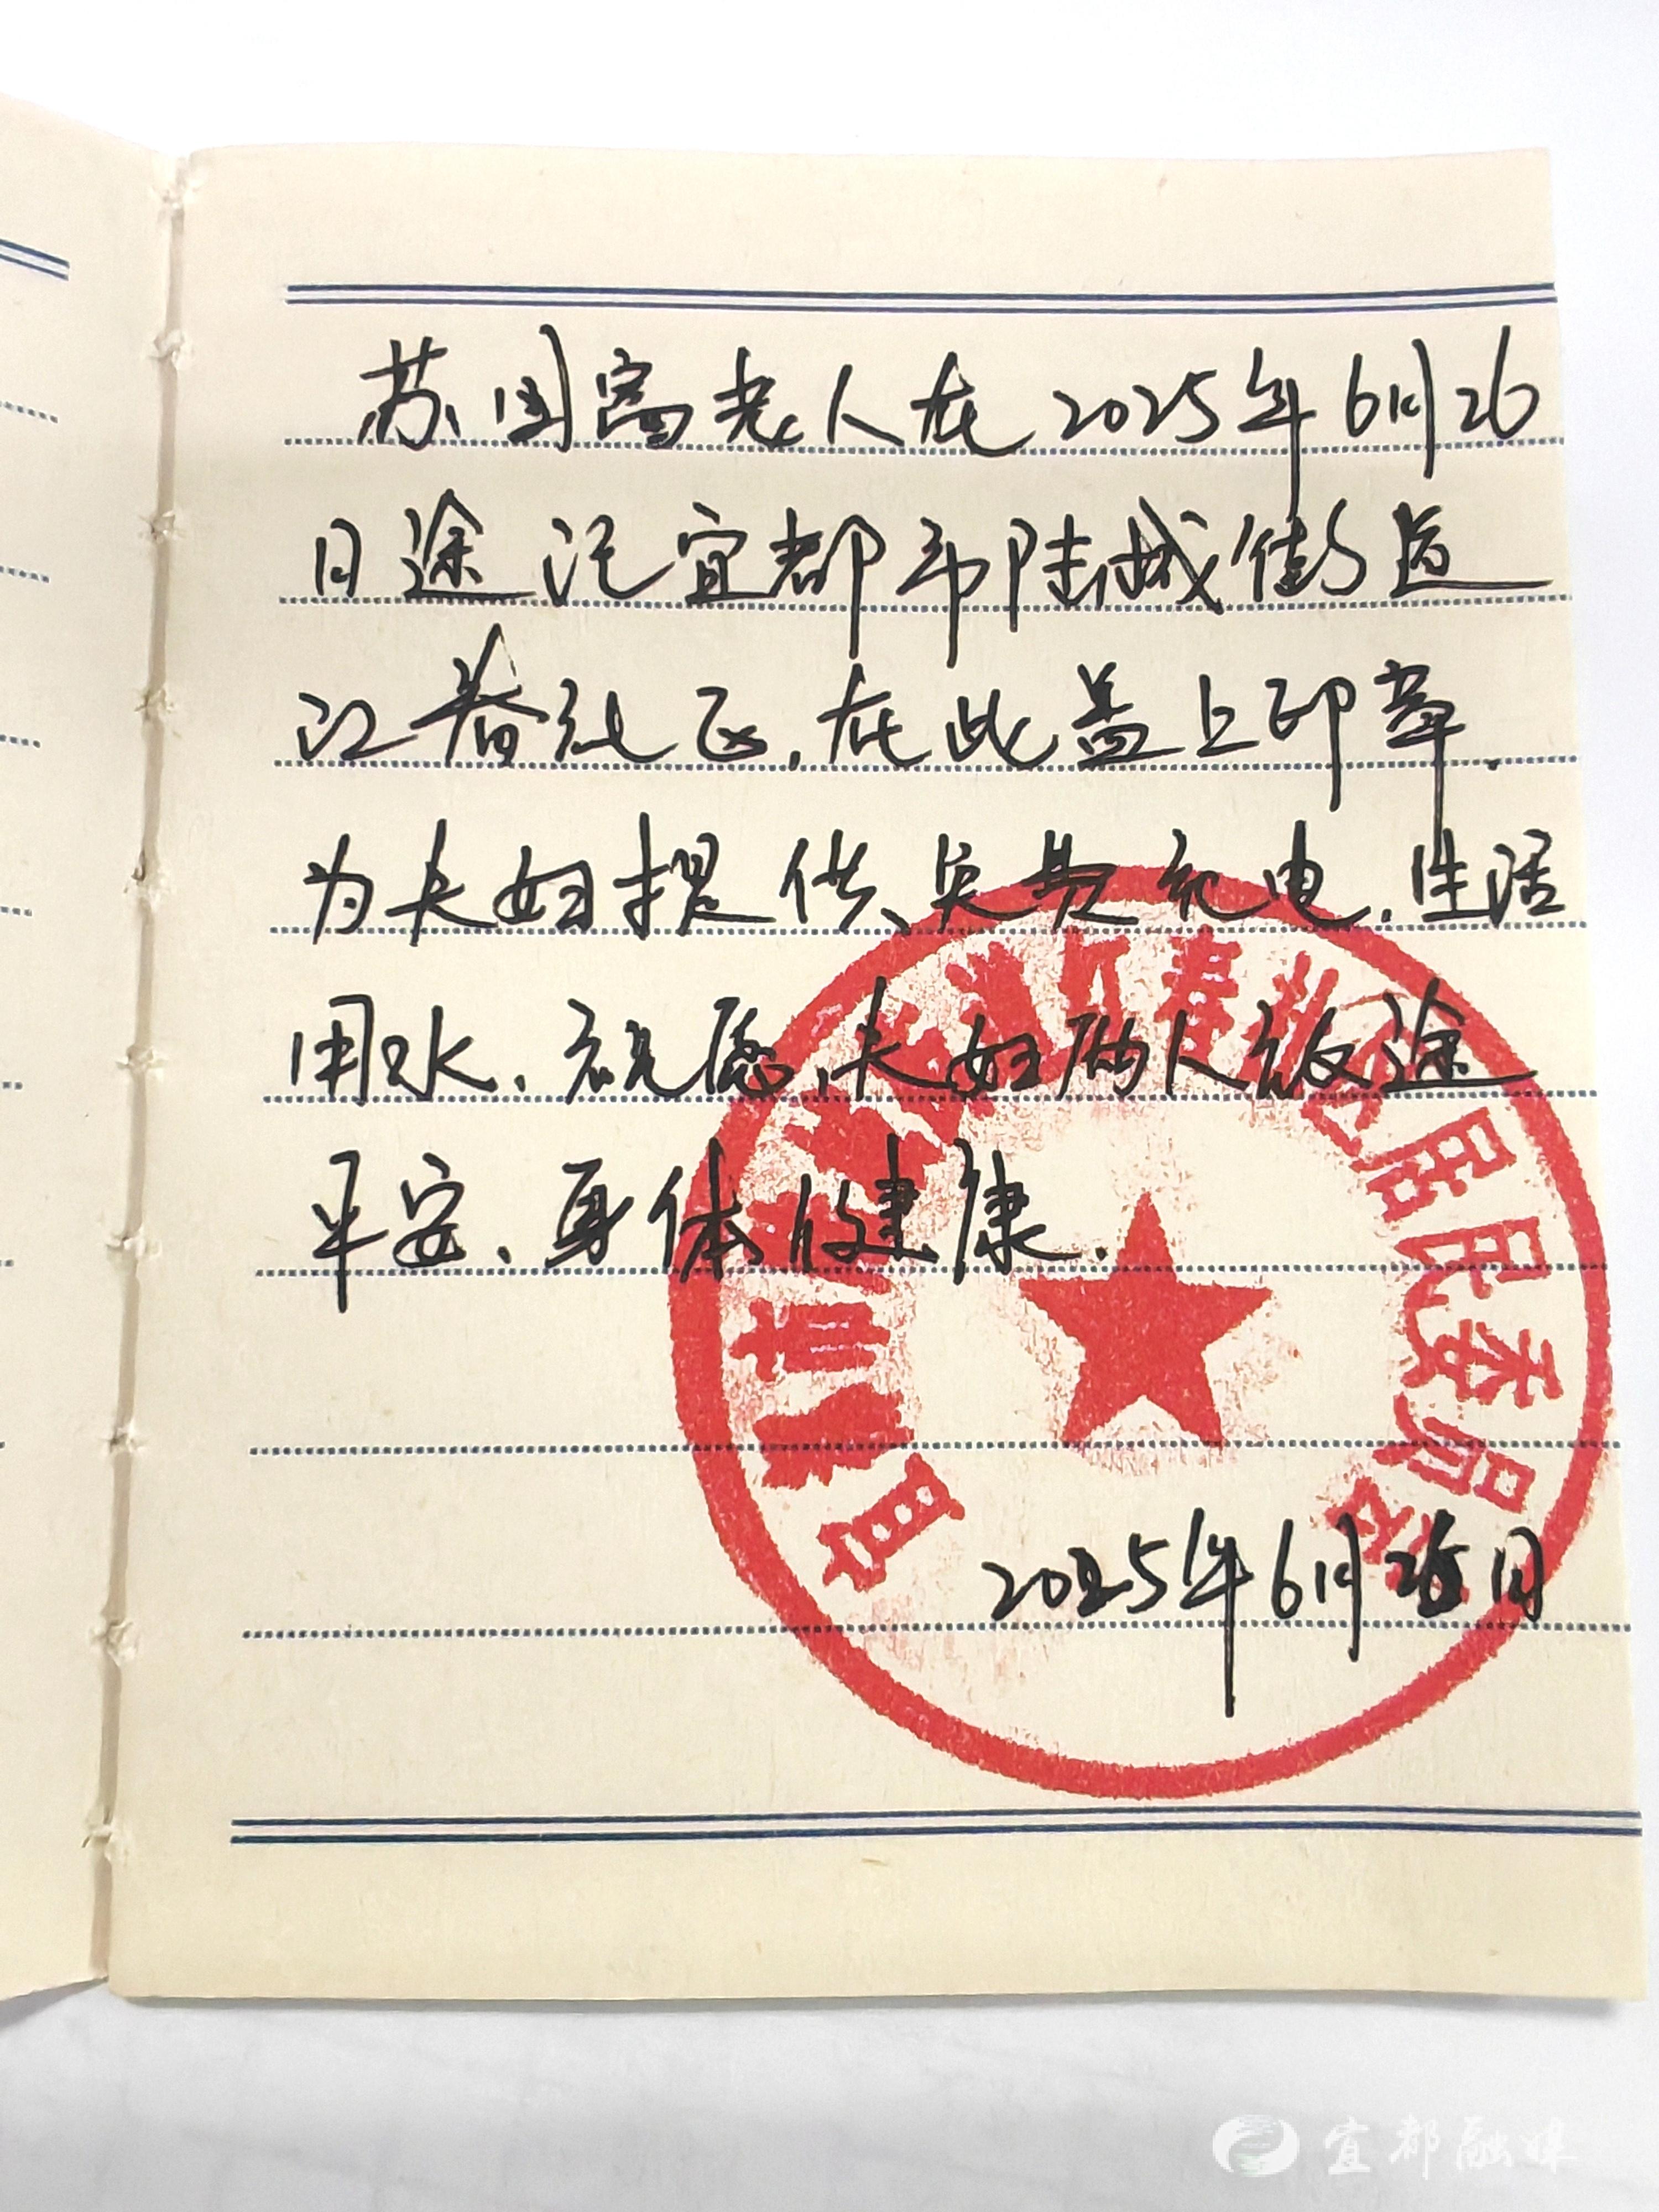 苏国富老人在2025年6月26
日途 宜都市陆城街道
江春社区,在此盖上印章.
为夫妇提供免费充电.生活
用水.祝愿,夫妇两人旅途
平安、身体健康.
江春社区居民委员会
2025年6月26日
宜都融媒